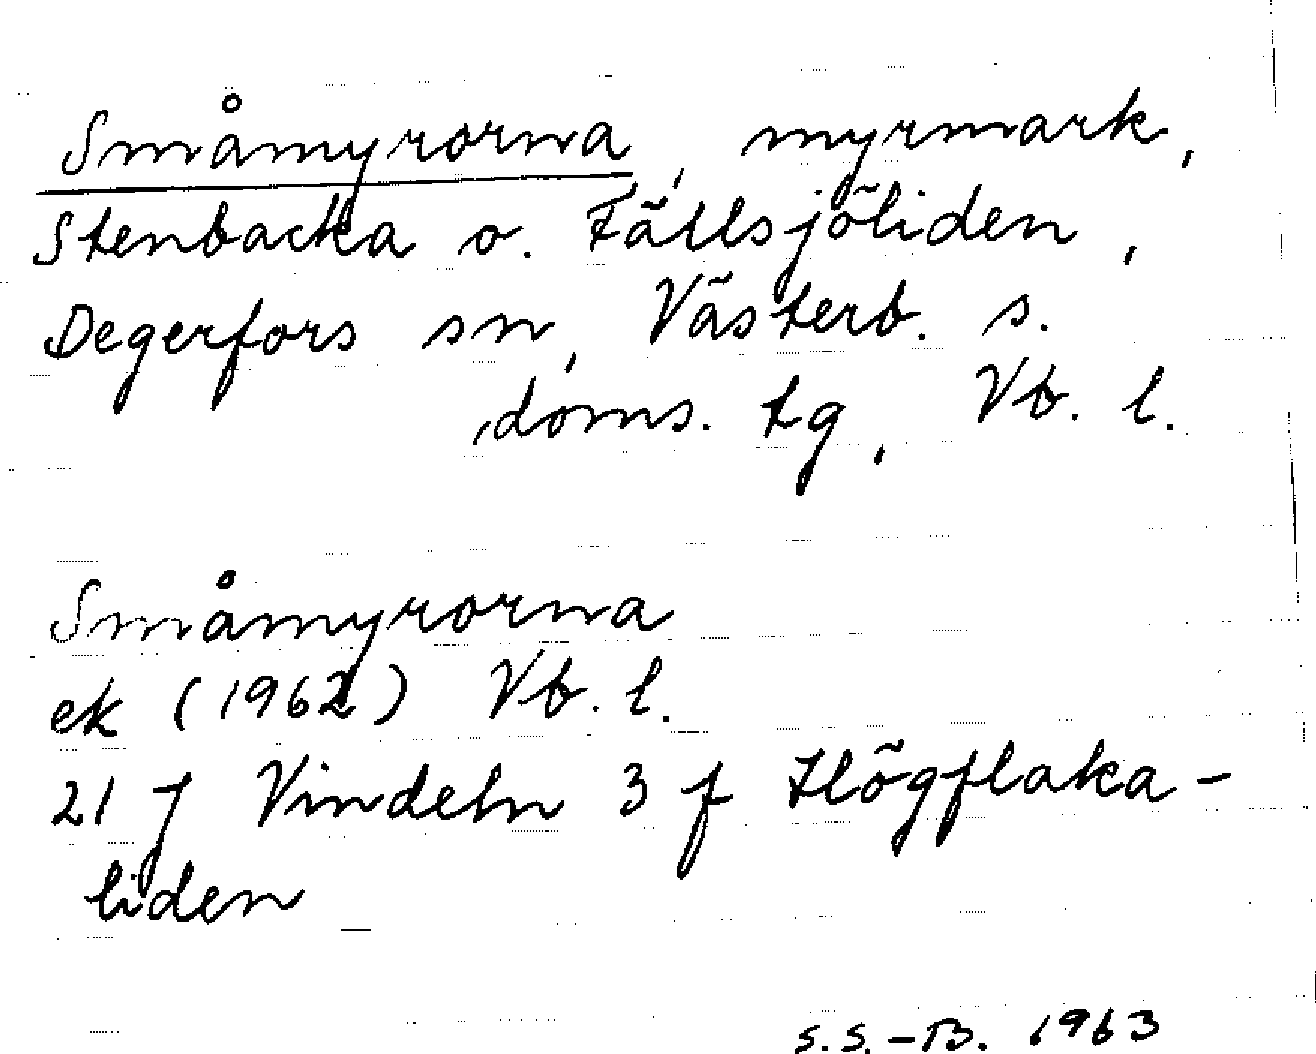 Småmyrorna, myrmark,
Stenbacka o. Fällsjöliden,
Degerfors sn, Västerb. s.
doms. tg, Vb. l.
Småmyrorna
ek (1962) Vb. l.
21 J Vindeln 3 f Högflaka-
liden
S.S.-B. 1963